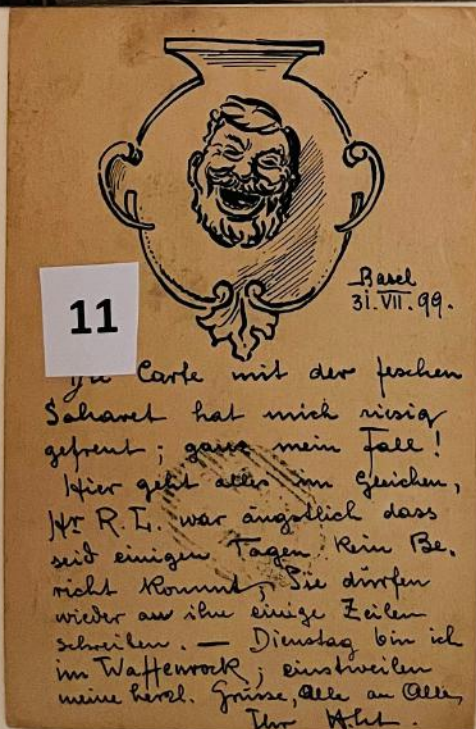 Basel
31. VII. 99.
11
Carte mit der feschen
Saharet hat mich riesig
gefreut; ganz mein Fall!
Hier geht alles im Gleichen,
Hr R. L. war ängstlich dass
seid einigen Tagen kein Be-
richt kommt, Sie dürfen
wieder an ihn einige Zeilen
schreiben. — Dienstag bin ich
im Waffenrock; einstweilen
meine herzl. Grüsse, Alle an Alle,
Ihr